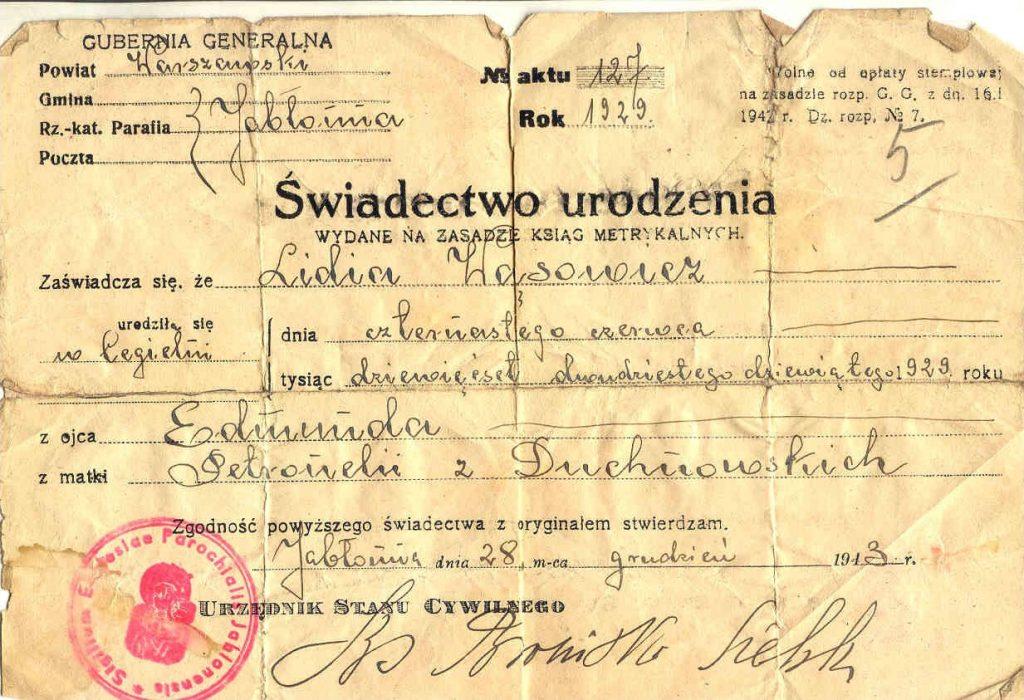 GUBERNIA GENERALNA
Powiat Warszawski
Gmina
Rz.-kat. Parafia Jabłonna
Poczta
№ aktu 127
Rok 1929.
Wolne od opłaty stemplowej
na zasadzie rozp. G. G. z dn. 16.I
1942 r. Dz. rozp. № 7.
5
Świadectwo urodzenia
WYDANE NA ZASADZE KSIĄG METRYKALNYCH.
Zaświadcza się, że Lidia Wąsowicz
urodziła się
w Cegielni
dnia czternastego czerwca
tysiąc dziewięćset dwudziestego dziewiątego 1929 roku
z ojca Edmunda
z matki Petroneli z Duchnowskich
Zgodność powyższego świadectwa z oryginałem stwierdzam.
Jabłonna dnia 28 m-ca grudzień 1943 r.
URZĘDNIK STANU CYWILNEGO
Sigillum Ecclesiae Parochialis Jablonensis